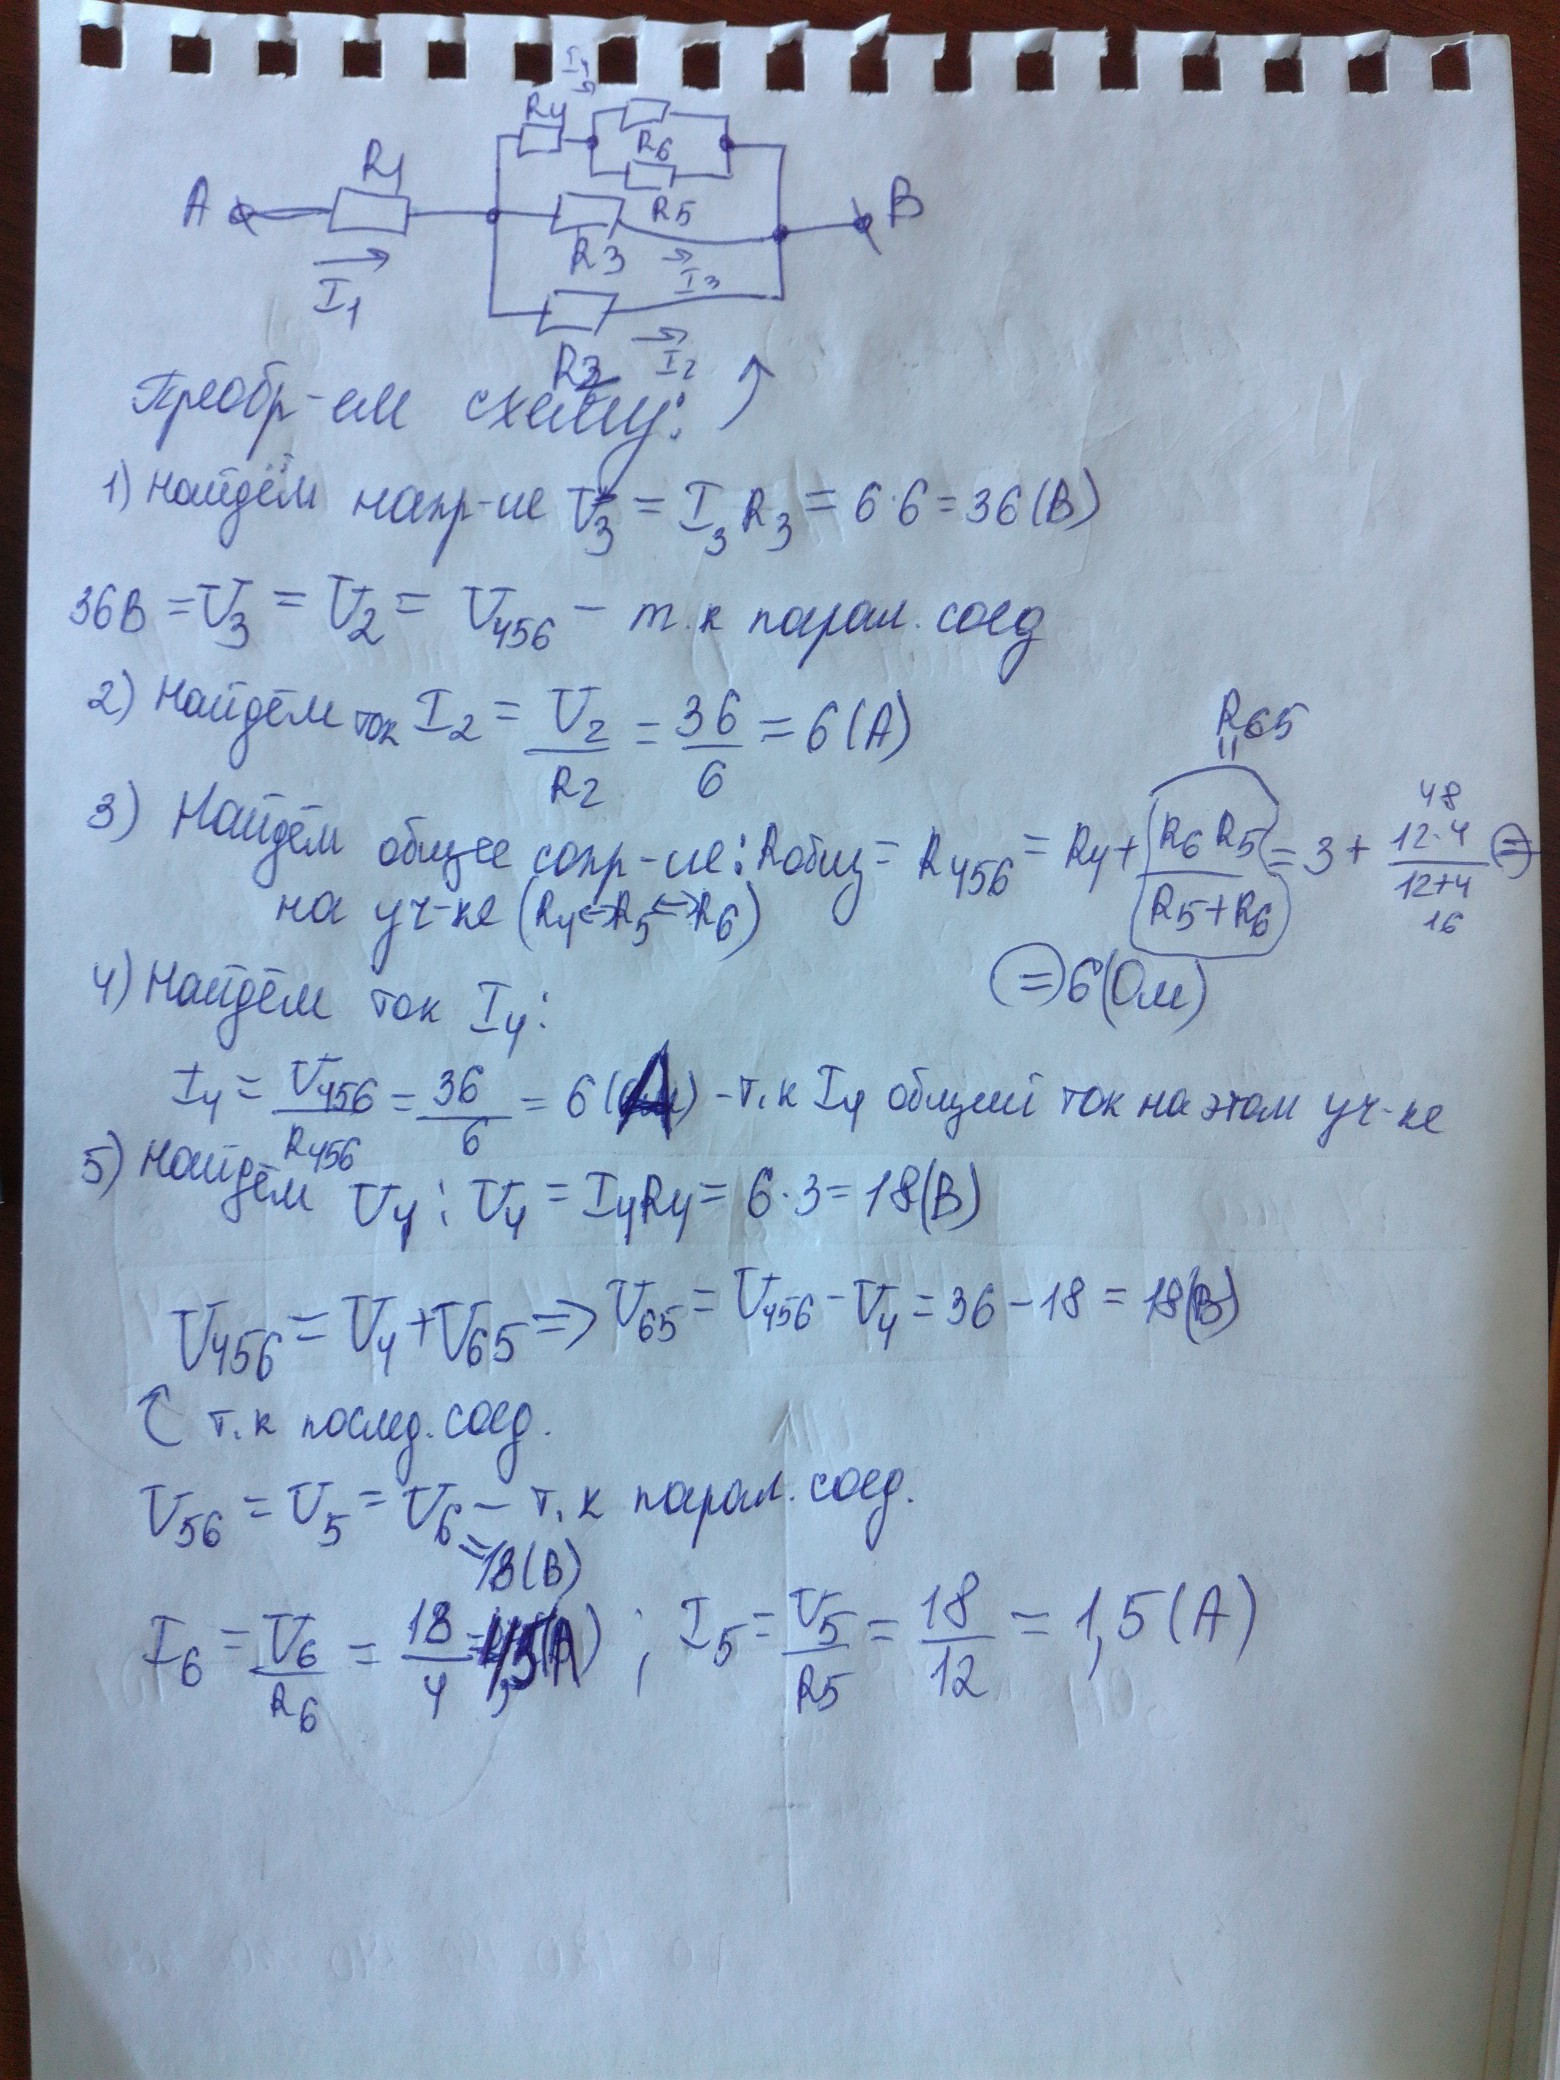 I4
R4
R6
R1
A
B
R5
R3
I3
I1
R2
I2
Преобр-ем схему:
1) Найдём напр-ие U3 = I3 R3 = 6·6 = 36 (В)
36В = U3 = U2 = U456 – т.к парал. соед
2) Найдём ток I2 = U2/R2 = 36/6 = 6 (А)
R65
=
3) Найдём общее сопр-ие: Rобщ = R456 = R4 + R6 R5/R5+R6 = 3 + 12·4/12+4 =
48
16
на уч-ке (R4↔R5↔R6)
= 6 (Ом)
4) Найдём ток I4:
I4 = U456/R456 = 36/6 = 6 (А) – т.к I4 общий ток на этом уч-ке
5) Найдём U4: U4 = I4R4 = 6·3 = 18(В)
U456 = U4 + U65 => U65 = U456 – U4 = 36 – 18 = 18(В)
т.к послед. соед.
U56 = U5 = U6 – т.к парал. соед.
= 18(В)
I6 = U6/R6 = 18/4 = 4,5(А) ; I5 = U5/R5 = 18/12 = 1,5 (А)